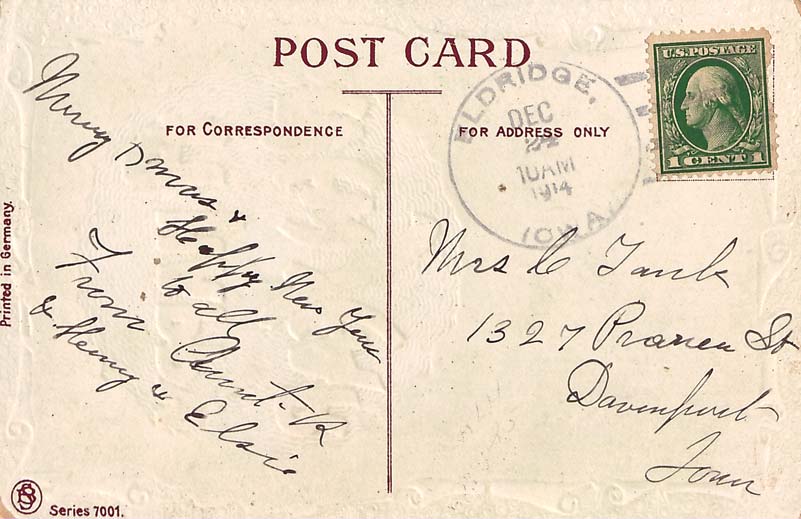 POST CARD
FOR CORRESPONDENCE
FOR ADDRESS ONLY
ELDRIDGE,
DEC
24
10AM
1914
IOWA.
U.S. POSTAGE
1 CENT 1
Merry Xmas &
Happy New Year
to all
From Aunt R
& Henry & Elsie
Mrs C Tank
1327 St
Davenport
Iowa
Printed in Germany.
BS
Series 7001.